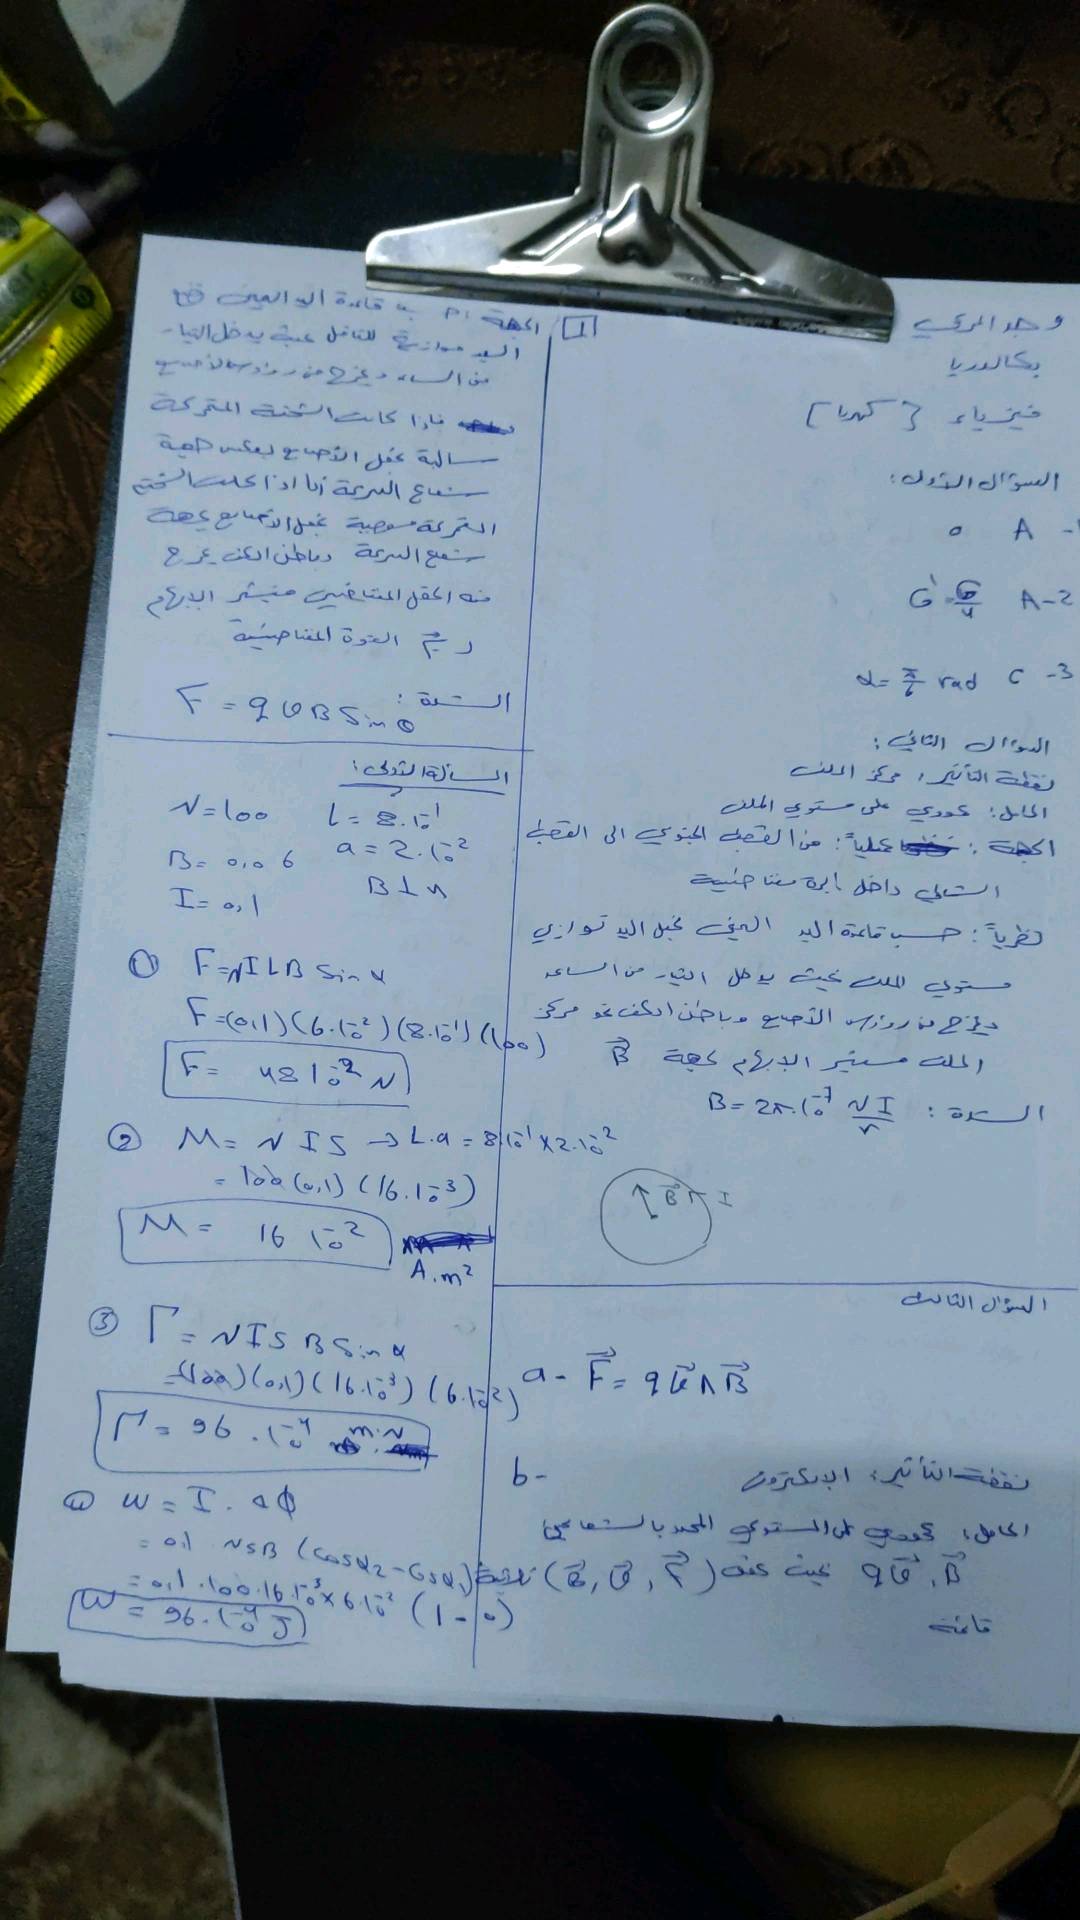 بكالوريا
فيزياء {كهرباء}
السؤال الأول:
1- A 0
2- A G' = G/4
3- C α = π/6 rad
السؤال الثاني:
نقطة التأثير: مركز الملف
الحامل: عمودي على مستوي الملف
الجهة: عملياً: من القطب الجنوبي الى القطب
الشمالي داخل إبرة مغناطيسية
نظرياً: حسب قاعدة اليد اليمنى نجعل اليد توازي
مستوي الملف بحيث يدخل التيار من الساعد
ويخرج من رؤوس الأصابع وباطن الكف نحو مركز
الملف فيشير الإبهام لجهة B⃗
الشدة: B = 2π.10⁻⁷ NI/r
B⃗ I
السؤال الثالث
a - F⃗ = q v⃗ ∧ B⃗
b-
نقطة التأثير: الإلكترون
الحامل: عمودي على المستوي المحدد بالشعاعين
q v⃗, B⃗ بحيث (B⃗, v⃗, F⃗) ثلاثية
قائمة
1
الجهة: قاعدة اليد اليمنى
اليد موازية للناقل بحيث يدخل التيار
من الساعد ويخرج من رؤوس الأصابع
فإذا كانت الشحنة المتحركة
سالبة نجعل الأصابع بعكس جهة
شعاع السرعة أما إذا كانت الشحنة
المتحركة موجبة نجعل الأصابع بجهة
شعاع السرعة وباطن الكف يخرج
منه الحقل المغناطيسي فيشير الإبهام
القوة المغناطيسية
الشدة: F = q v B Sin θ
المسألة الأولى:
N = 100 L = 8.10⁻¹
B = 0,06 a = 2.10⁻²
I = 0,1 B ⊥ n
① F = N I L B Sin α
F = (0,1) (6.10⁻²) (8.10⁻¹) (100)
F = 48 10⁻² N
② M = N I S → L.a = 8.10⁻¹ × 2.10⁻²
= 100 (0,1) (16.10⁻³)
M = 16 10⁻²
A.m²
③ Γ = N I S B Sin α
= (100) (0,1) (16.10⁻³) (6.10⁻²)
Γ = 96 . 10⁻⁴ m.N
④ W = I . Δ Φ
= 0,1 N S B (Cos α₂ - Cos α₁)
= 0,1 . 100 . 16.10⁻³ × 6.10⁻² (1 - 0)
W = 96 . 10⁻⁴ J